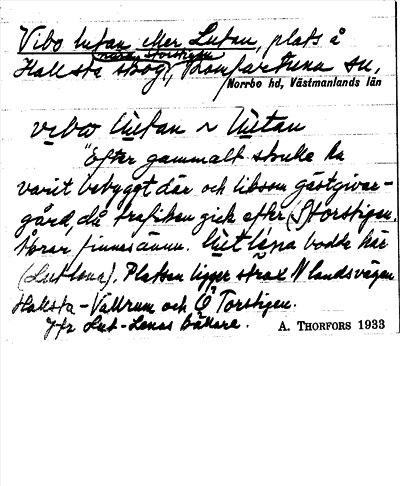 Vibo lutan eller Lutan, plats å
nära Storstigen
Hallsta skog, Romfartuna sn,
Norrbo hd, Västmanlands län
vibo lutan ~ lutan
"Efter gammalt skulle ha
varit bebyggt där och liksom gästgivar-
gård, då trafiken gick efter Storstigen.
Spår finnes ännu. bodde här
(Lutlena). Platsen ligger strax N landsvägen
Hallsta - Vallrum och Ö Torstigen.
Jfr Lut-Lenas källare.
A. THORFORS 1933